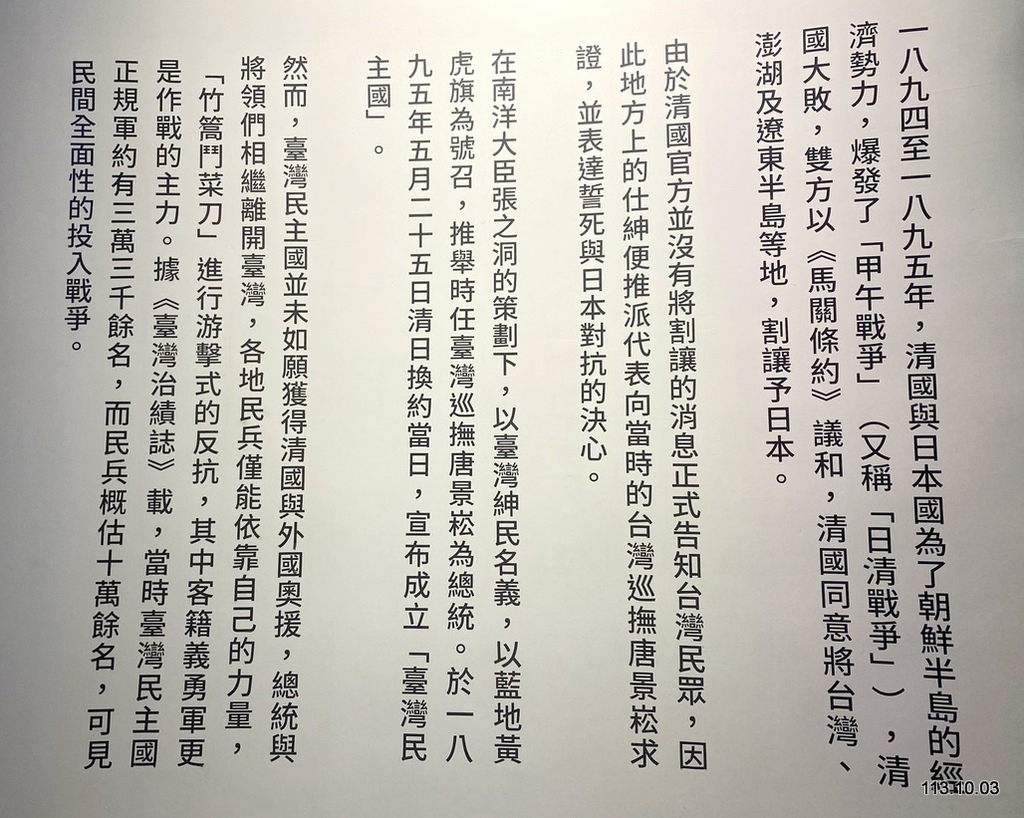 一八九四至一八九五年，清國與日本國為了朝鮮半島的經
濟勢力，爆發了「甲午戰爭」（又稱「日清戰爭」），清
國大敗，雙方以《馬關條約》議和，清國同意將台灣、
澎湖及遼東半島等地，割讓予日本。
由於清國官方並沒有將割讓的消息正式告知台灣民眾，因
此地方上的仕紳便推派代表向當時的台灣巡撫唐景崧求
證，並表達誓死與日本對抗的決心。
在南洋大臣張之洞的策劃下，以臺灣紳民名義，以藍地黃
虎旗為號召，推舉時任臺灣巡撫唐景崧為總統。於一八
九五年五月二十五日清日換約當日，宣布成立「臺灣民
主國」。
然而，臺灣民主國並未如願獲得清國與外國奧援，總統與
將領們相繼離開臺灣，各地民兵僅能依靠自己的力量，
「竹篙鬥菜刀」進行游擊式的反抗，其中客籍義勇軍更
是作戰的主力。據《臺灣治績誌》載，當時臺灣民主國
正規軍約有三萬三千餘名，而民兵概估十萬餘名，可見
民間全面性的投入戰爭。
113.10.03